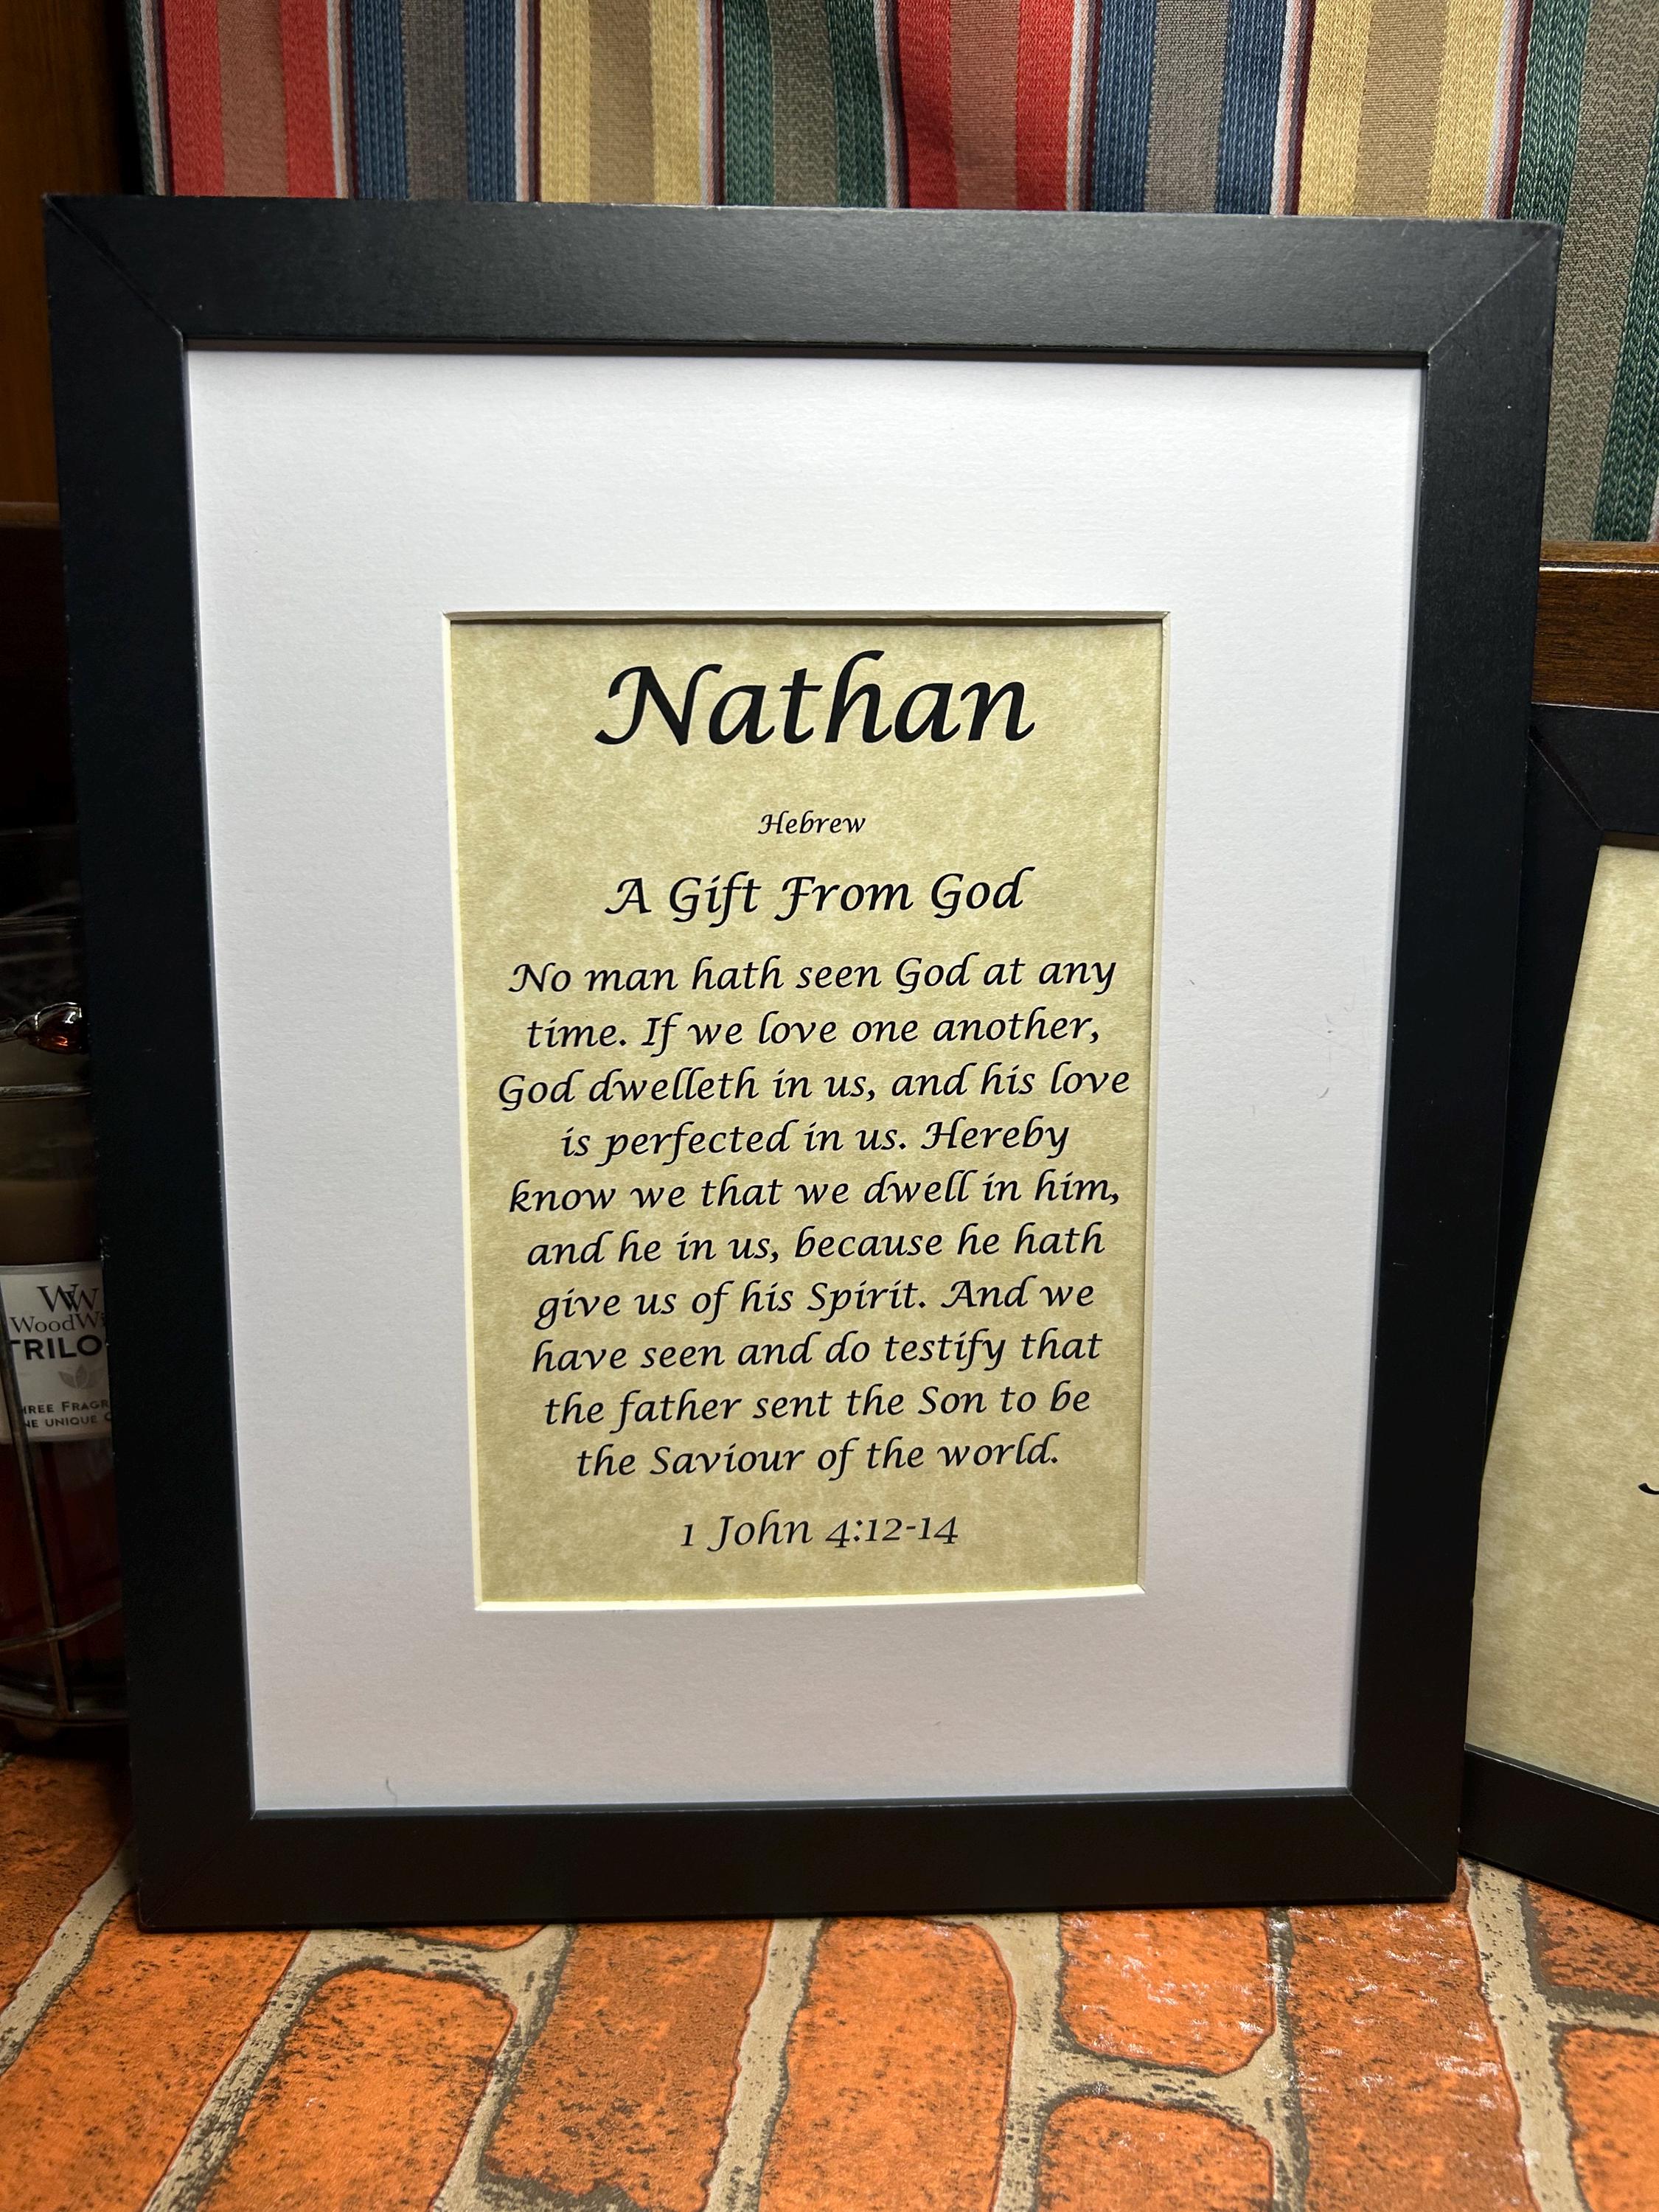 Nathan
Hebrew
A Gift From God
No man hath seen God at any
time. If we love one another,
God dwelleth in us, and his love
is perfected in us. Hereby
know we that we dwell in him,
and he in us, because he hath
give us of his Spirit. And we
have seen and do testify that
the father sent the Son to be
the Saviour of the world.
1 John 4:12-14
WW